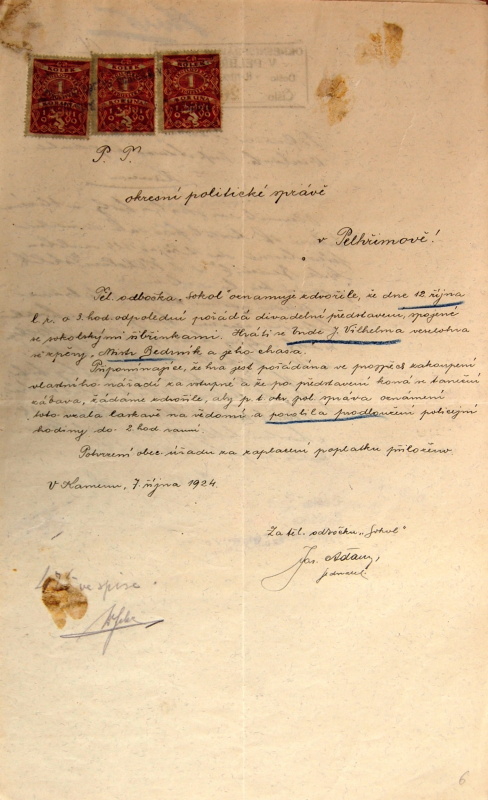 KOLEK KOLEK KOLEK
1 1 1
KORUNA KORUNA KORUNA
P. T.
okresní politické správě
v Pelhřimově!
Těl. odbočka „Sokol" oznamuje zdvořile, že dne 12. října
t. r. o 3. hod. odpolední pořádá divadelní představení, spojené
se sokolskými šibřinkami. Hráti se bude J. Vilhelma veselohra
se zpěvy „Mistr Bedrník a jeho chasa.
Připomínajíce, že hra jest pořádána ve prospěch zakoupení
vlastního nářadí za vstupné a že po představení koná se taneční
zábava, žádáme zdvořile, aby p. t. okr. pol. správa oznámení
toto vzala laskavě na vědomí a povolila prodloužení policejní
hodiny do 2. hod. ranní.
Potvrzení obec. úřadu za zaplacení poplatku přiloženo.
V Kamenu, 7 října 1924.
Za těl. odbočku „Sokol"
Jos. Adam,
jednatel.
ve spise.
6